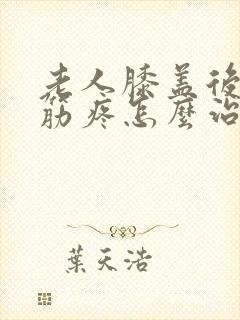 老人膝盖後
筋疼怎麼治
葉天浩